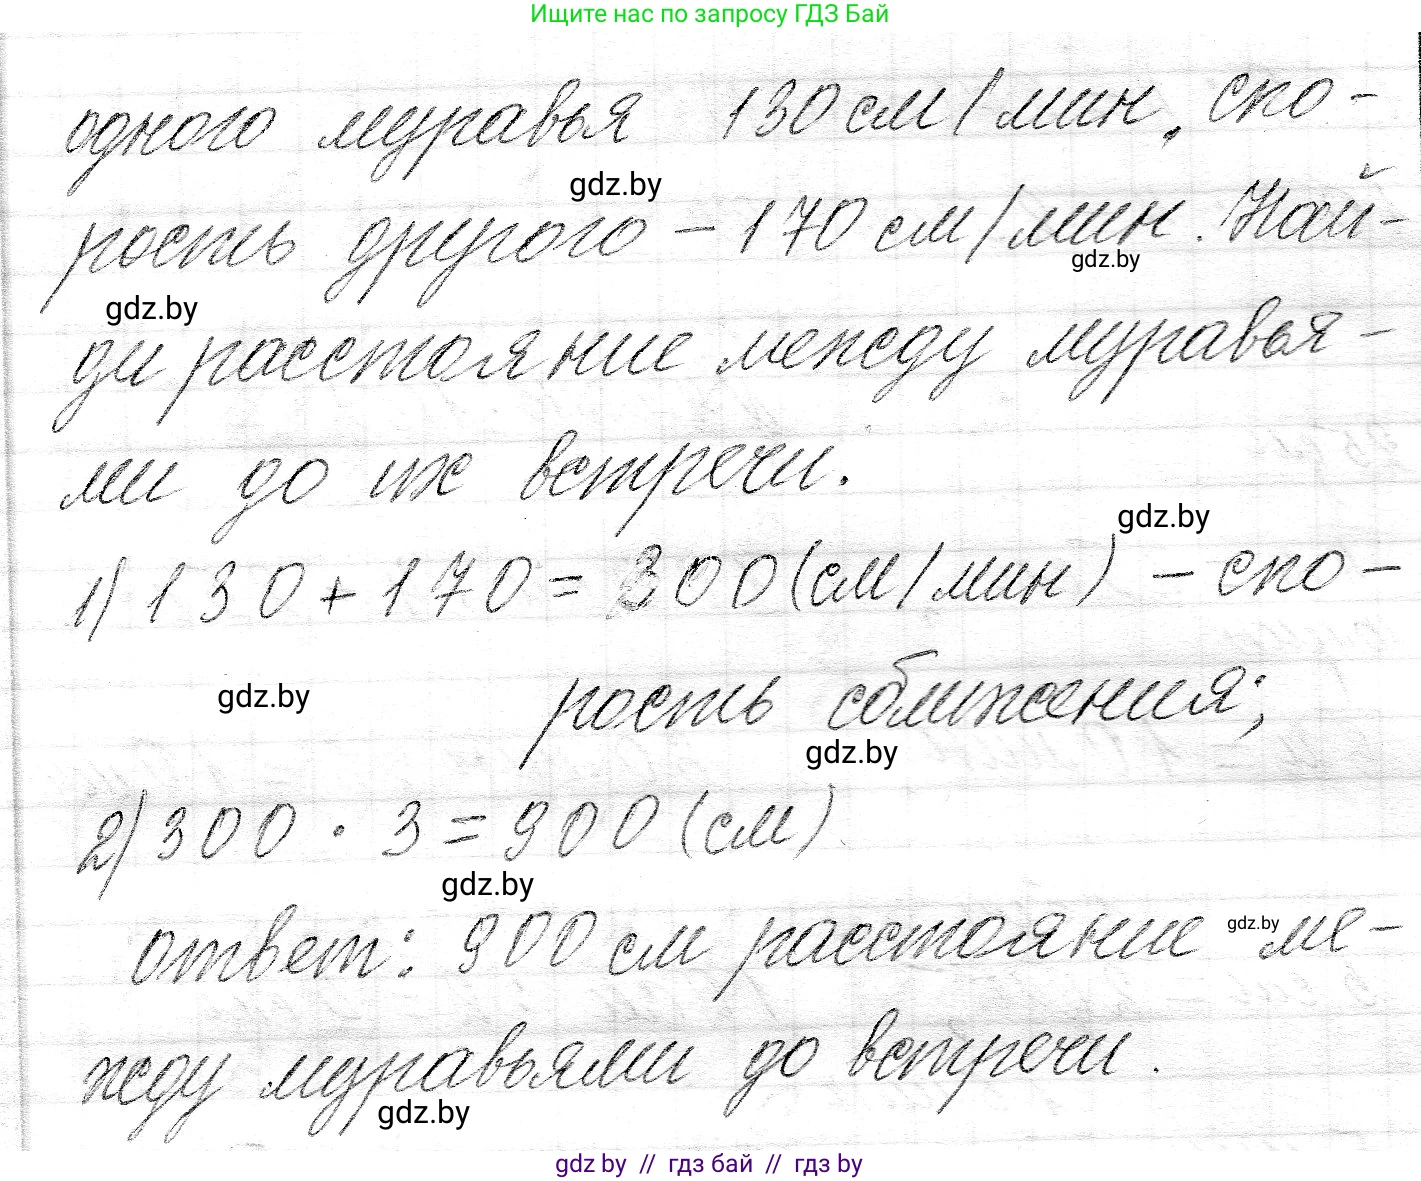 Ищите нас по запросу ГДЗ Бай
одного муравья 130 см/мин, ско-
gdz.by
рость другого – 170 см/мин. Най-
gdz.by
gdz.by
ди расстояние между муравья-
ми до их встречи.
gdz.by
1) 130 + 170 = 300 (см/мин) – ско-
gdz.by
рость сближения;
gdz.by
2) 300 · 3 = 900 (см)
gdz.by
ответ: 900 см расстояние ме-
gdz.by
жду муравьями до встречи.
gdz.by
gdz by // гдз бай // гдз by